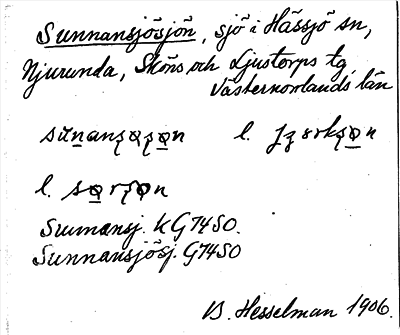 Sunnansjösjön, sjö i Hässjö sn,
Njurunda, Sköns och Ljustorps tg
Västernorrlands län
l.
l.
Sunnansj. KG74SO.
Sunnansjösj. G74SO
B. Hesselman 1906.